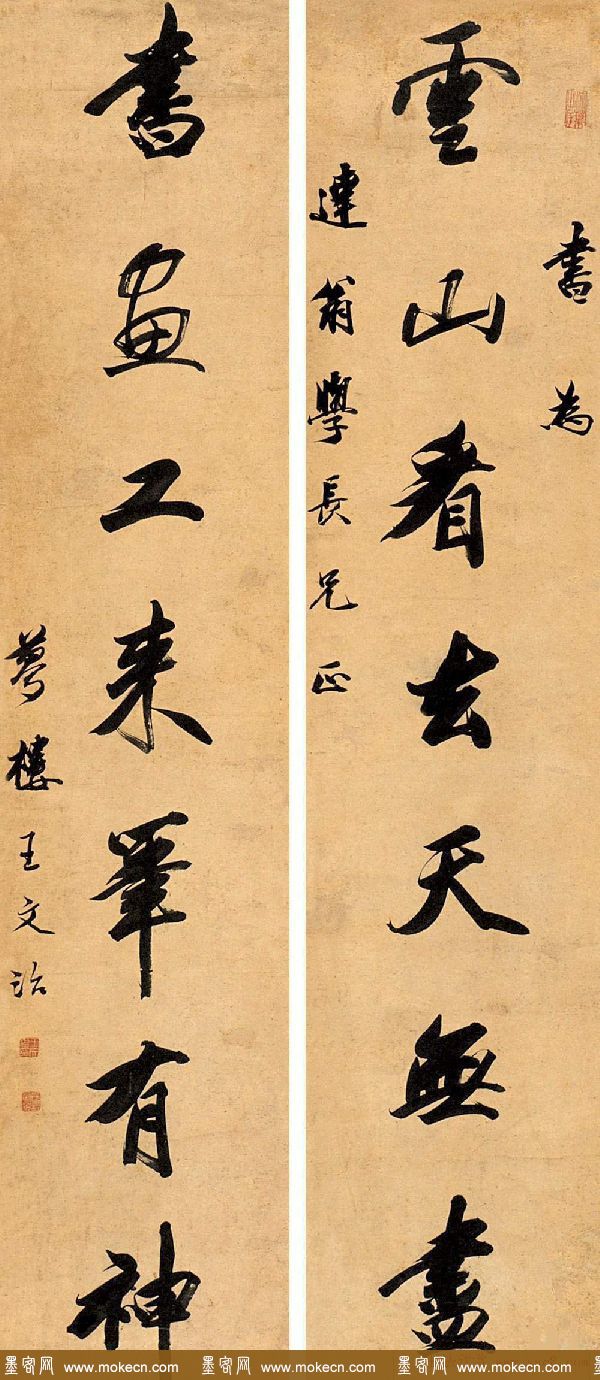 書為
雲山看去天無盡
達翁學長兄正
書畫工来筆有神
夢樓王文治
墨客网 www.mokecn.com 墨客网 www.mokecn.com 墨客网 www.mokecn.com